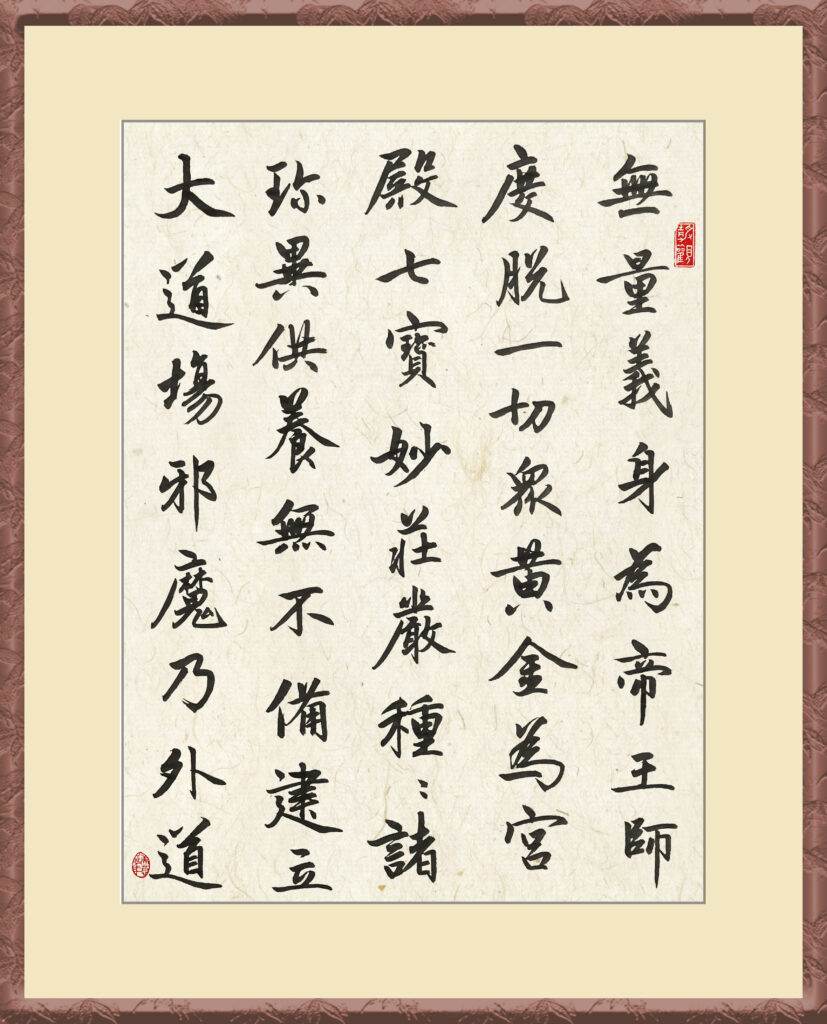 無量義身為帝王師
度脫一切眾黃金為宮
殿七寶妙莊嚴種〻諸
珎異供養無不備建立
大道場邪魔乃外道